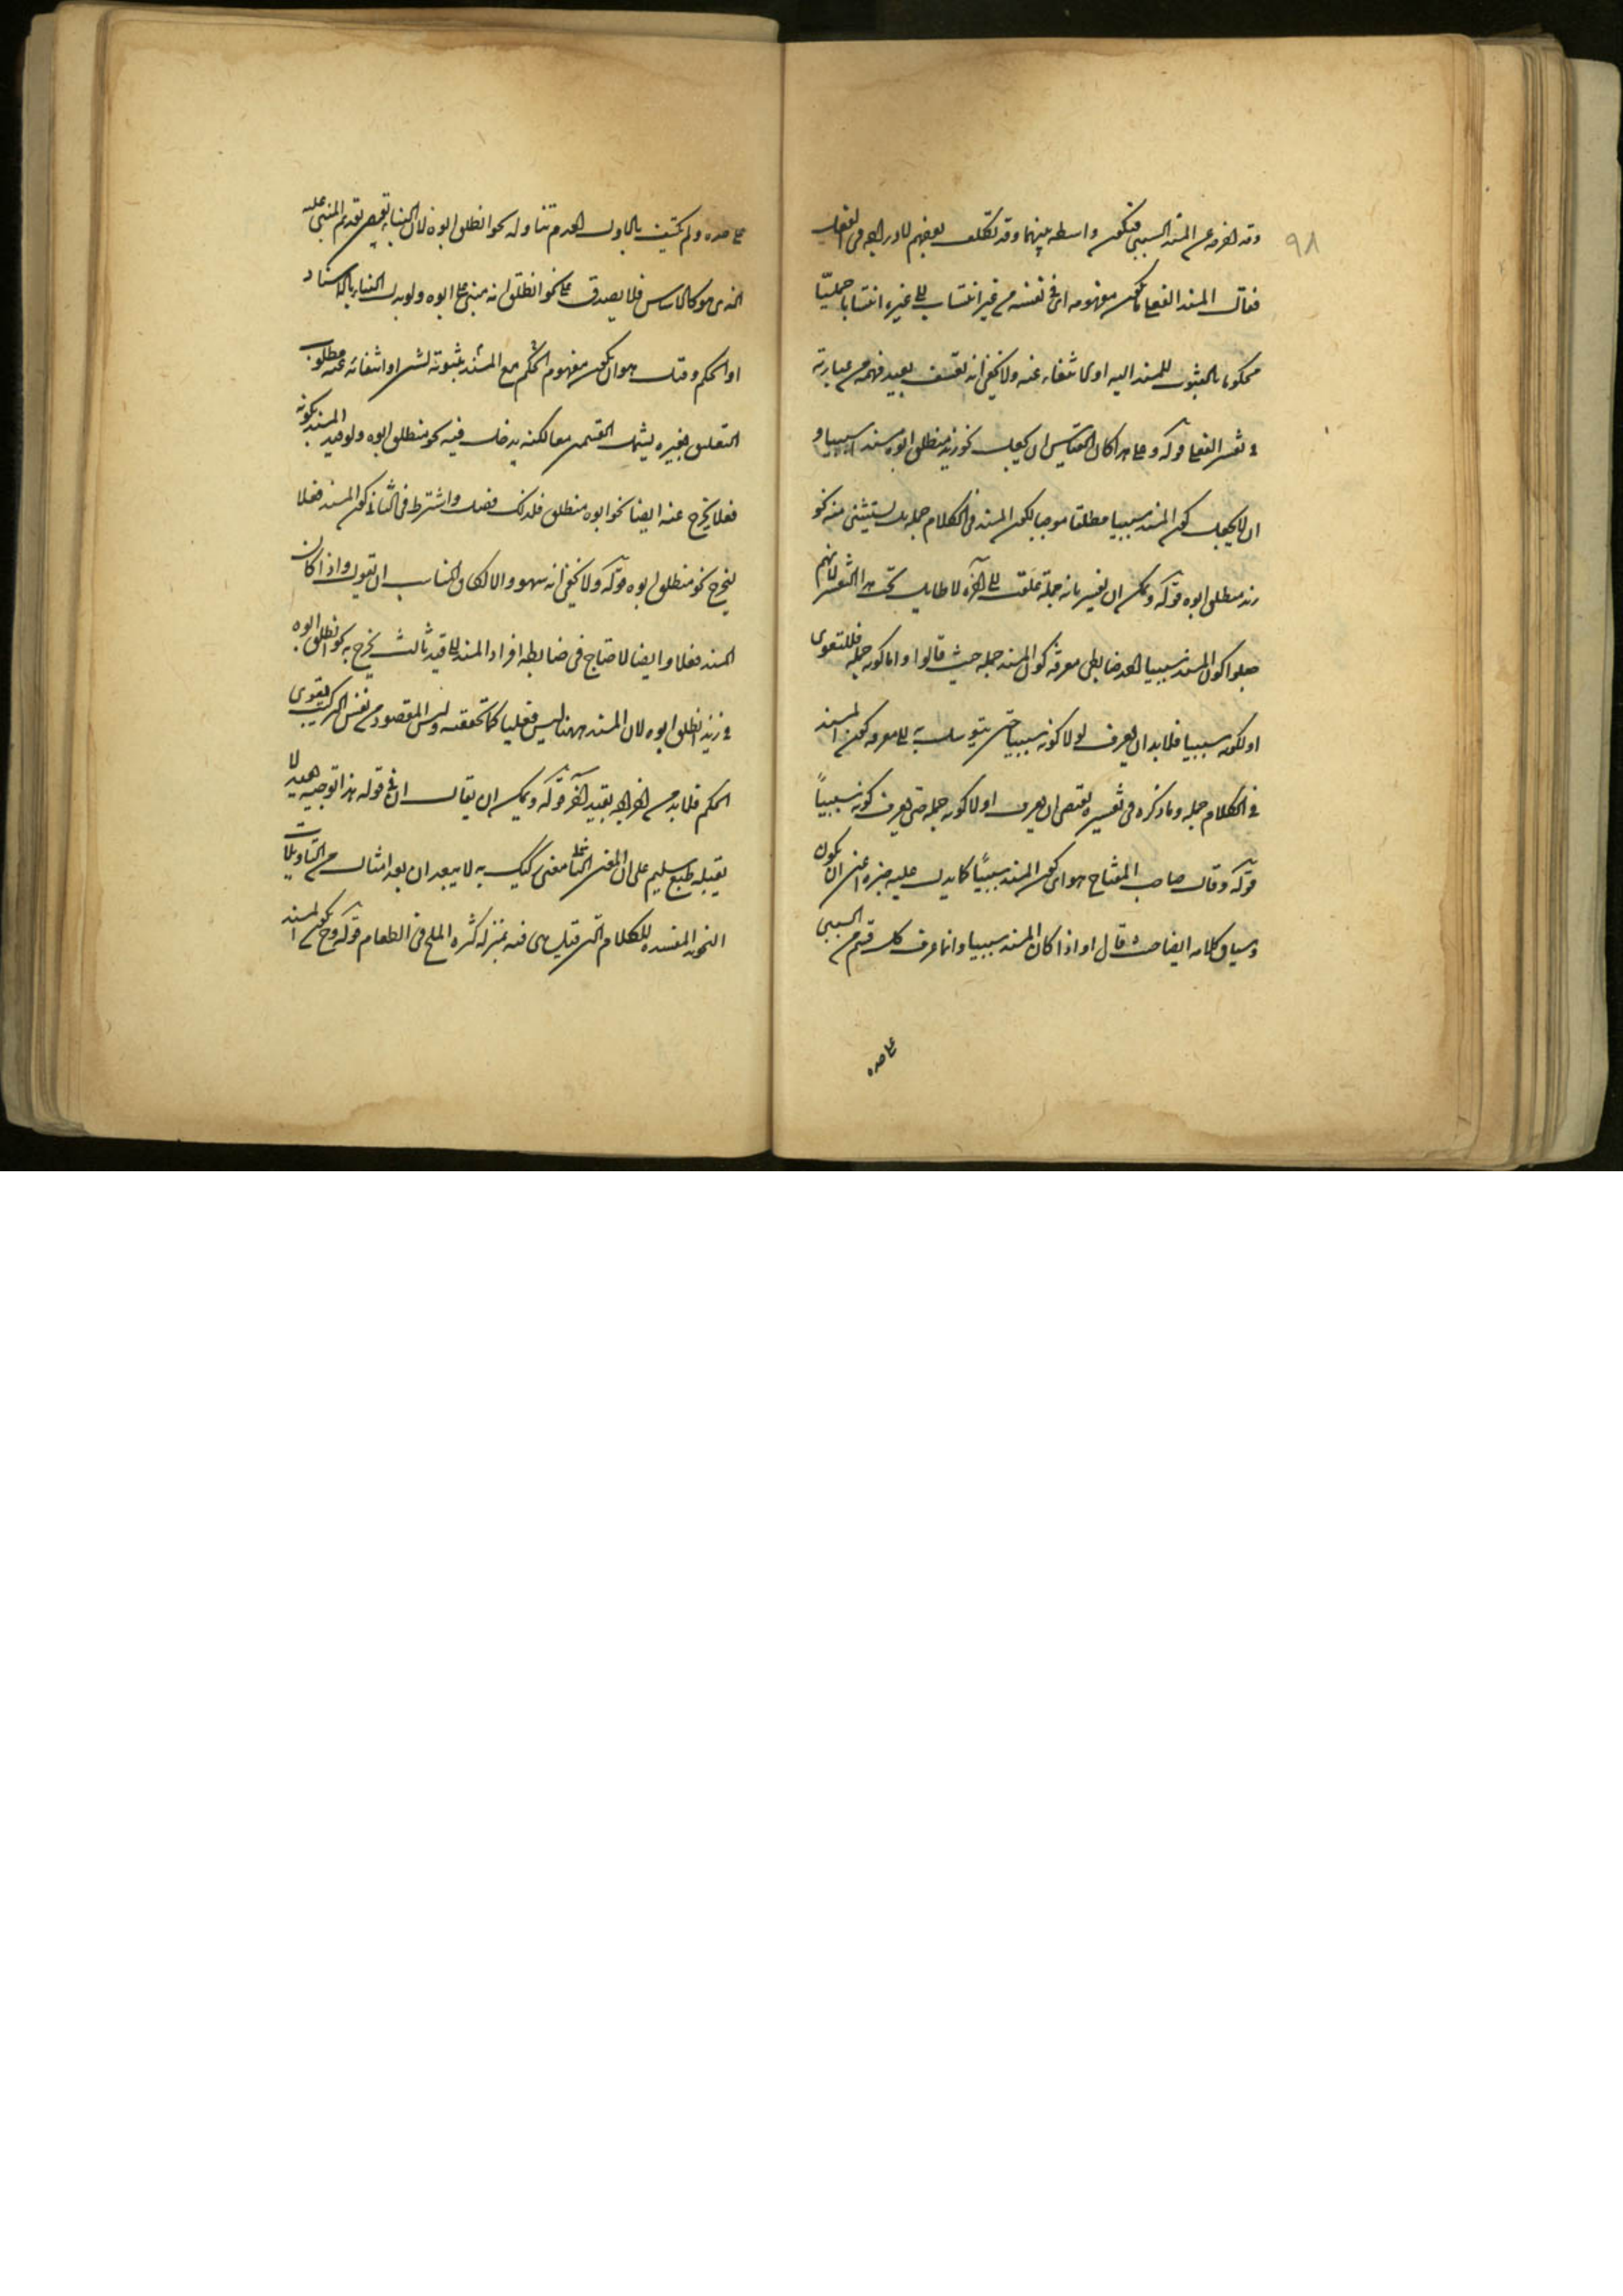 ٩٨
وقد اخرجه عن المسند السببي فتكون واسطه بينهما وقد تكلف بعضهم لادراجه في الفعلي
فقال المسند الفعلي ما يكون مفهومه اي في نفسه من غير انتساب الى غيره انتسابا حمليّا
محكوما بالثبوت للمسند اليه او بانتفائه عنه ولا يخفى انه تعسف بعيد فهمه من عبارته
في تفسير الفعلي قوله وعلى هذا كان القياس ان يجعل نحو زيد منطلق ابوه مسندا سببيا و
ان لا يجعل كون المسند سببيا مطلقا موجبا لكون المسند في الكلام جملة بل يستثنى منه نحو
زيد منطلق ابوه قوله ويمكن ان يفسر بانه جملة علقت الى آخره لا طايل تحت هذا التفسير لانهم
جعلوا كون المسند سببيا احد ضابطي معرفة كون المسند جملة حيث قالوا واما كونه جملة فللتقوي
او لكونه سببيا فلا بد ان يعرف اولا كونه سببيا حتى يتوسل به الى معرفة كون المسند
في الكلام جملة وما ذكره في تفسيره يقتضي ان يعرف اولا كونه جملة حتى يعرف كونه سببياً
قوله وقال صاحب المفتاح هو اي كون المسند سببياً كما يدل عليه خبره اعني ان يكون
وسياق كلامه ايضا حيث قال او اذا كان المسند سببيا وانما عرف كل قسم من السببي
على حده
على حده ولم يكتف بالاول لعدم تناوله نحو انطلق ابوه لان البناء يقتضي تقديم المبني عليه
الذي هو كالاساس فلا يصدق على نحو انطلق انه مبني على ابوه ولو بدل البناء بالاسناد
او الحكم وقال هو ان يكون مفهوم الحكم مع المسند بثبوته لشي او انتفائه عنه مطلوب
التعليق بغيره يشمل القسمين معا لكنه يدخل فيه نحو منطلق ابوه ولو قيد المسند بكونه
فعلا يخرج عنه ايضا نحو ابوه منطلق فلذلك فصل واشترط في الثاني كون المسند فعلا
ليخرج نحو منطلق ابوه قوله ولا يخفى انه سهو والا لكان المناسب ان يقول واذا كان
المسند فعلا وايضا لاحتاج في ضابطه افراد المسند الى قيد ثالث يخرج به نحو انطلق ابوه
في زيد انطلق ابوه لان المسند ههنا ليس فعليا كما تحققته وليس المقصود من نفس التركيب تقوي
الحكم فلا بد من اخراجه بقيد آخر قوله ويمكن ان يقال ان في قوله هذا توجيه بعيد لا
يقبله طبع سليم على ان المغير الثاني معنى ركيك به لا يبعد ان يعد امثال من التاويلات
النحويه المفسده للكلام التي قيل هي فيه بمنزله كثره الملح في الطعام قوله وح يكون المسند